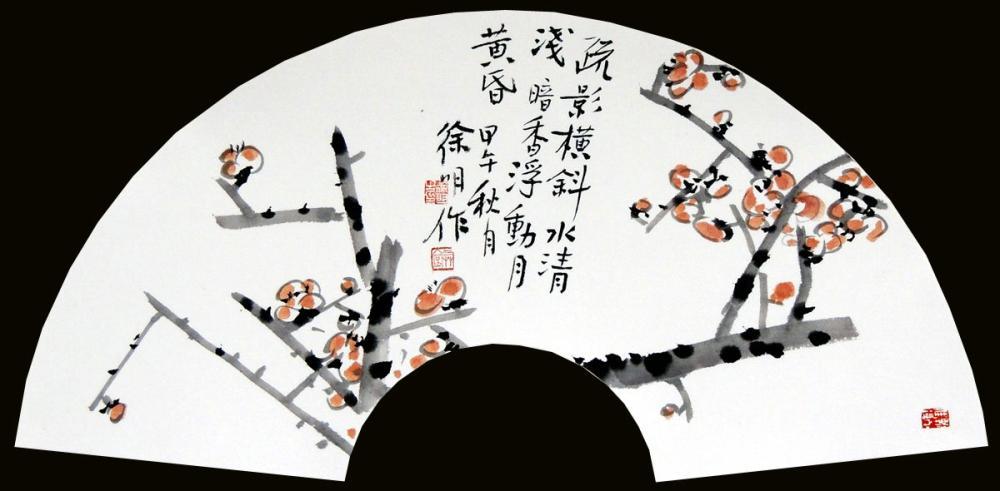 疏影橫斜水清
淺暗香浮動月
黃昏
甲午秋月
徐明作